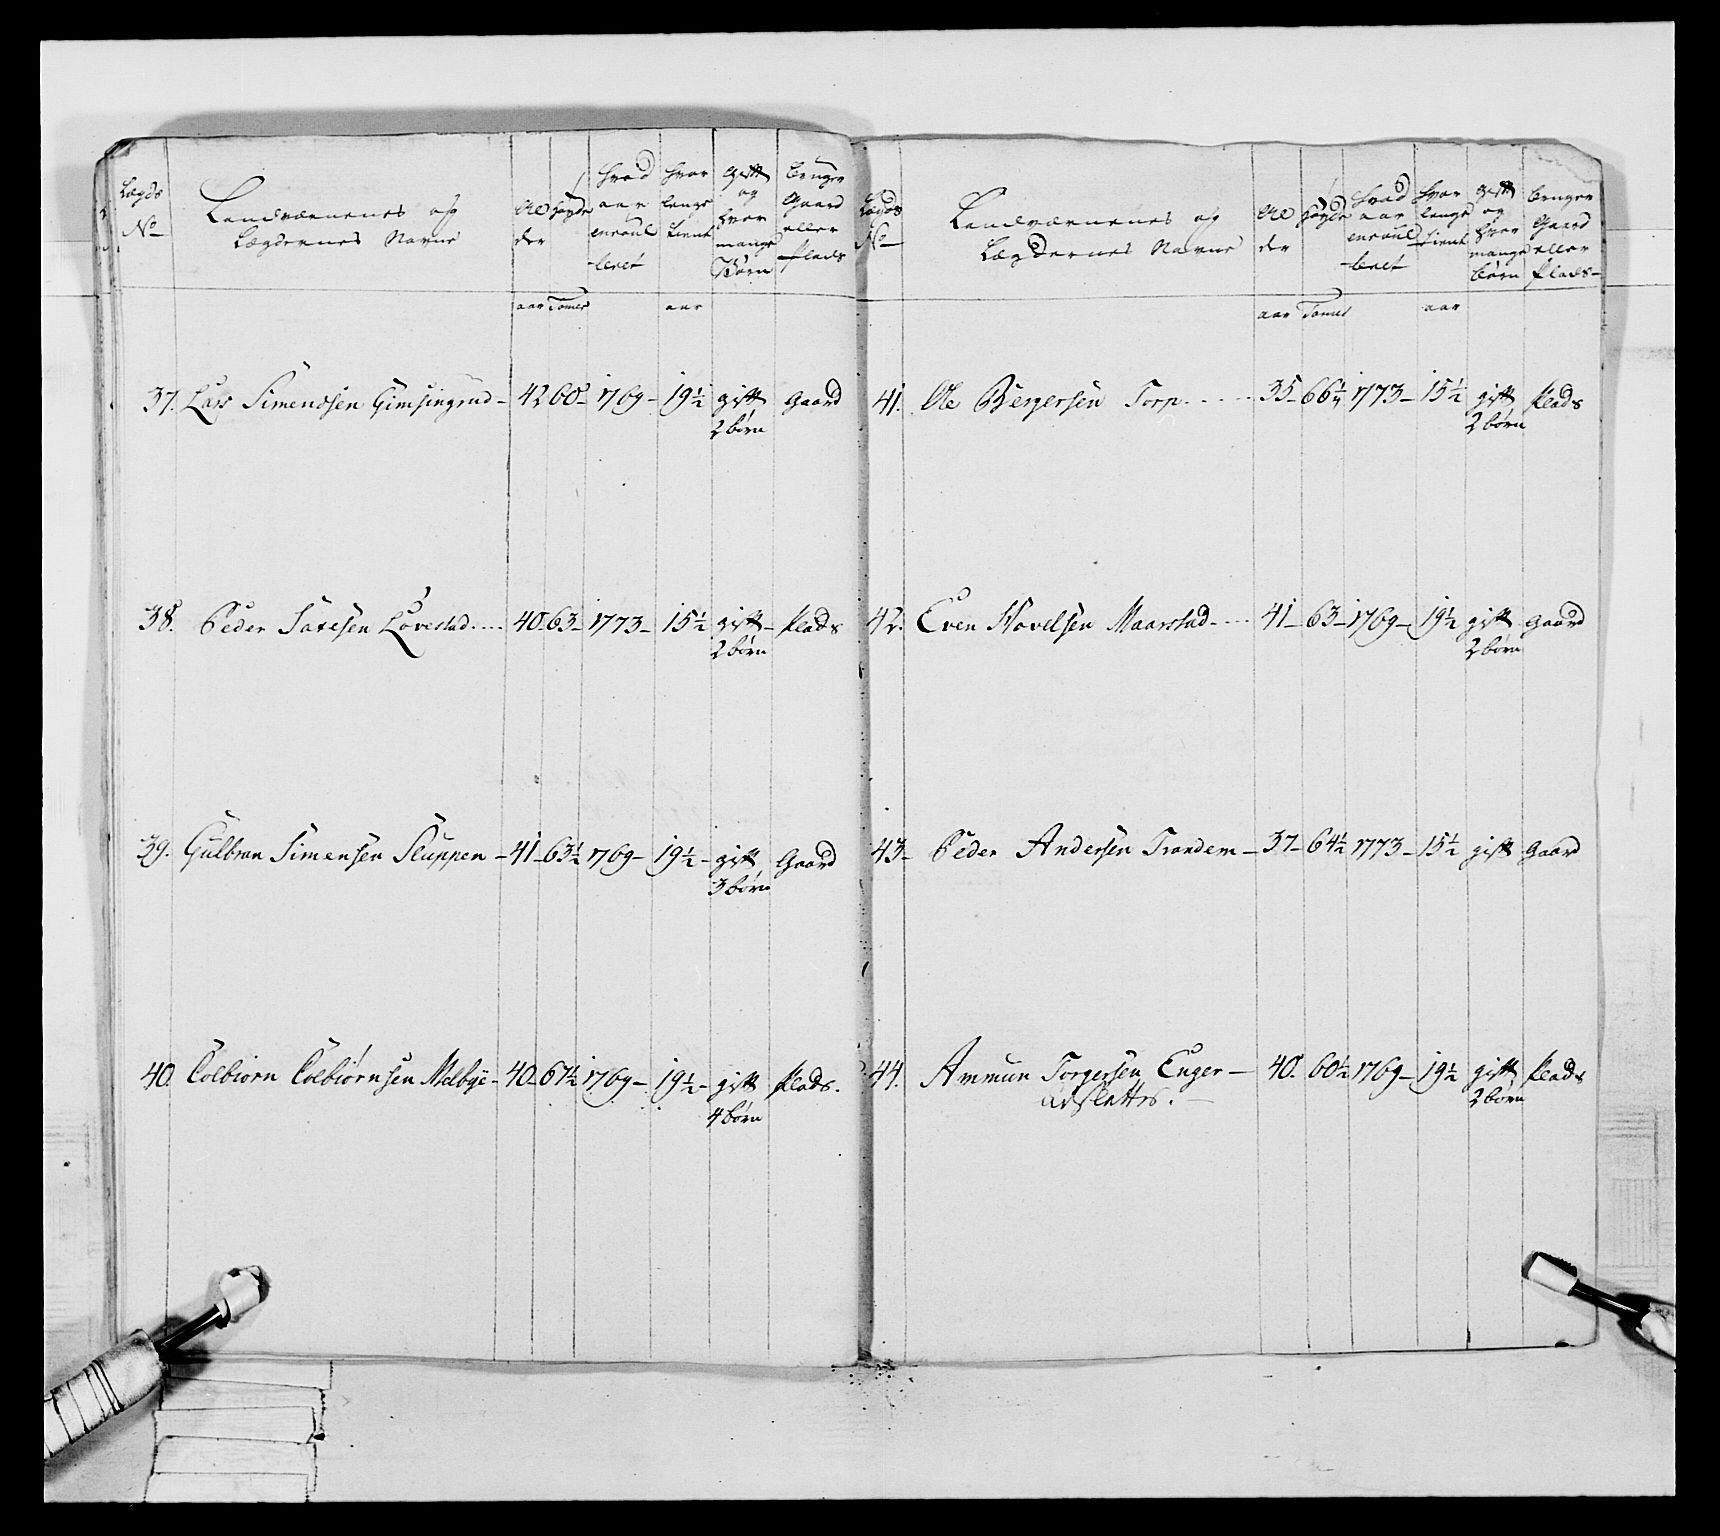 Lægds No Landværnenes og Lægdernes Navne Alder Høyde Hvad aar enroulleret Hvor lenge tient gift og hvor mange Børn bruger Gaard eller Plads
aar Tomer aar
37. Lars Simensen Gimsingrud 42 60 1769 19½ gift Gaard
2 børn
38. Peder Larsen Løvestad 40 63 1773 15½ gift Plads
2 børn
39. Gulbran Simensen Sluppen 41 63½ 1769 19½ gift Gaard
3 børn
40. Colbiørn Colbiørnsen Melbye 40 67½ 1769 19½ gift Plads.
4 børn
Lægds No Landværnenes og Lægdernes Navne Alder Høyde Hvad aar enroulleret Hvor lenge tient gift og hvor mange børn bruger Gaard eller Plads
aar Tomer aar
41. Ole Bergersen Torp 35 66¼ 1773 15½ gift Plads
2 børn
42. Even Havelsen Maarstad 41 63 1769 19½ gift Gaard
2 børn
43 Peder Andersen Trandem 37 64½ 1773 15½ gift Gaard
44. Ammun Torgersen Enger 40 60½ 1769 19½ gift Plads
2 børn